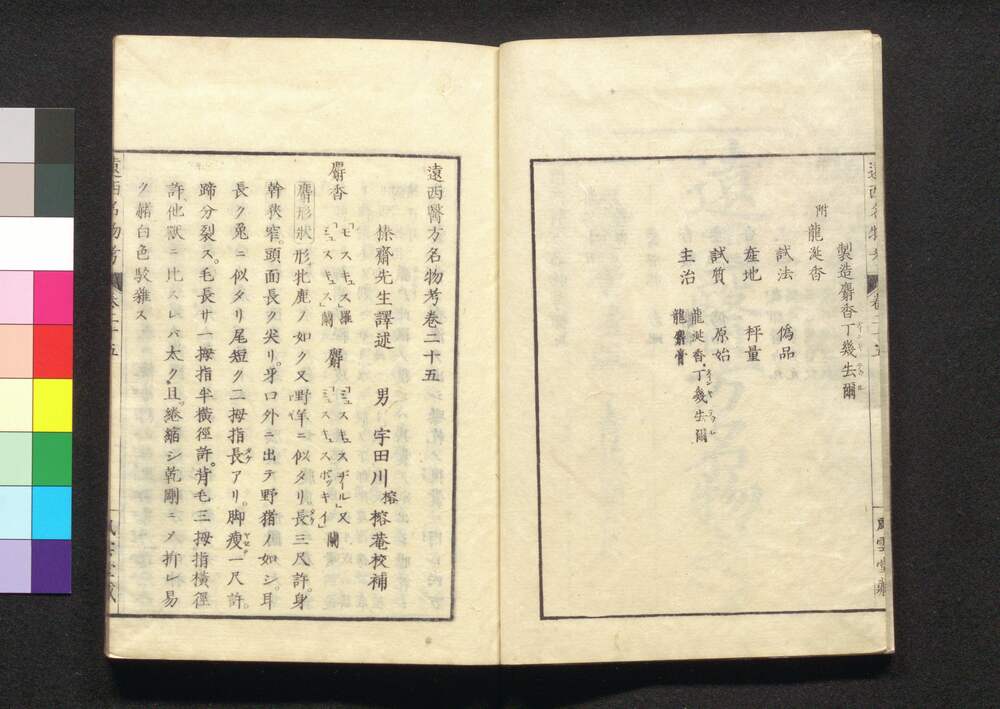 製造麝香丁幾丢爾
附
龍涎香
試法 偽品
産地 秤量
試質 原始
主治 龍涎香丁幾丢爾
龍麝膏
遠西醫方名物考卷二十五
榛齋先生譯述 男 宇田川榕 榕菴校補
麝香 「モスキュス」羅 「ミュスキュス」蘭 麝 「ミュスキュスヂール」又「ミュスキュスボッキイ」蘭
麝形狀 形牝鹿ノ如ク又野羊ニ似タリ長三尺許。身
幹狹窄。頭面長ク尖リ。牙口外ニ出テ野猪ノ如シ。耳
長ク兎ニ似タリ尾短ク二拇指長アリ。脚瘦一尺許。
蹄分裂ス。毛長サ一拇指半橫徑許。背毛三拇指橫徑
許。他獸ニ比スレハ太ク。且。捲縮シ乾剛ニノ折レ易
ク赭白色駁雜ス